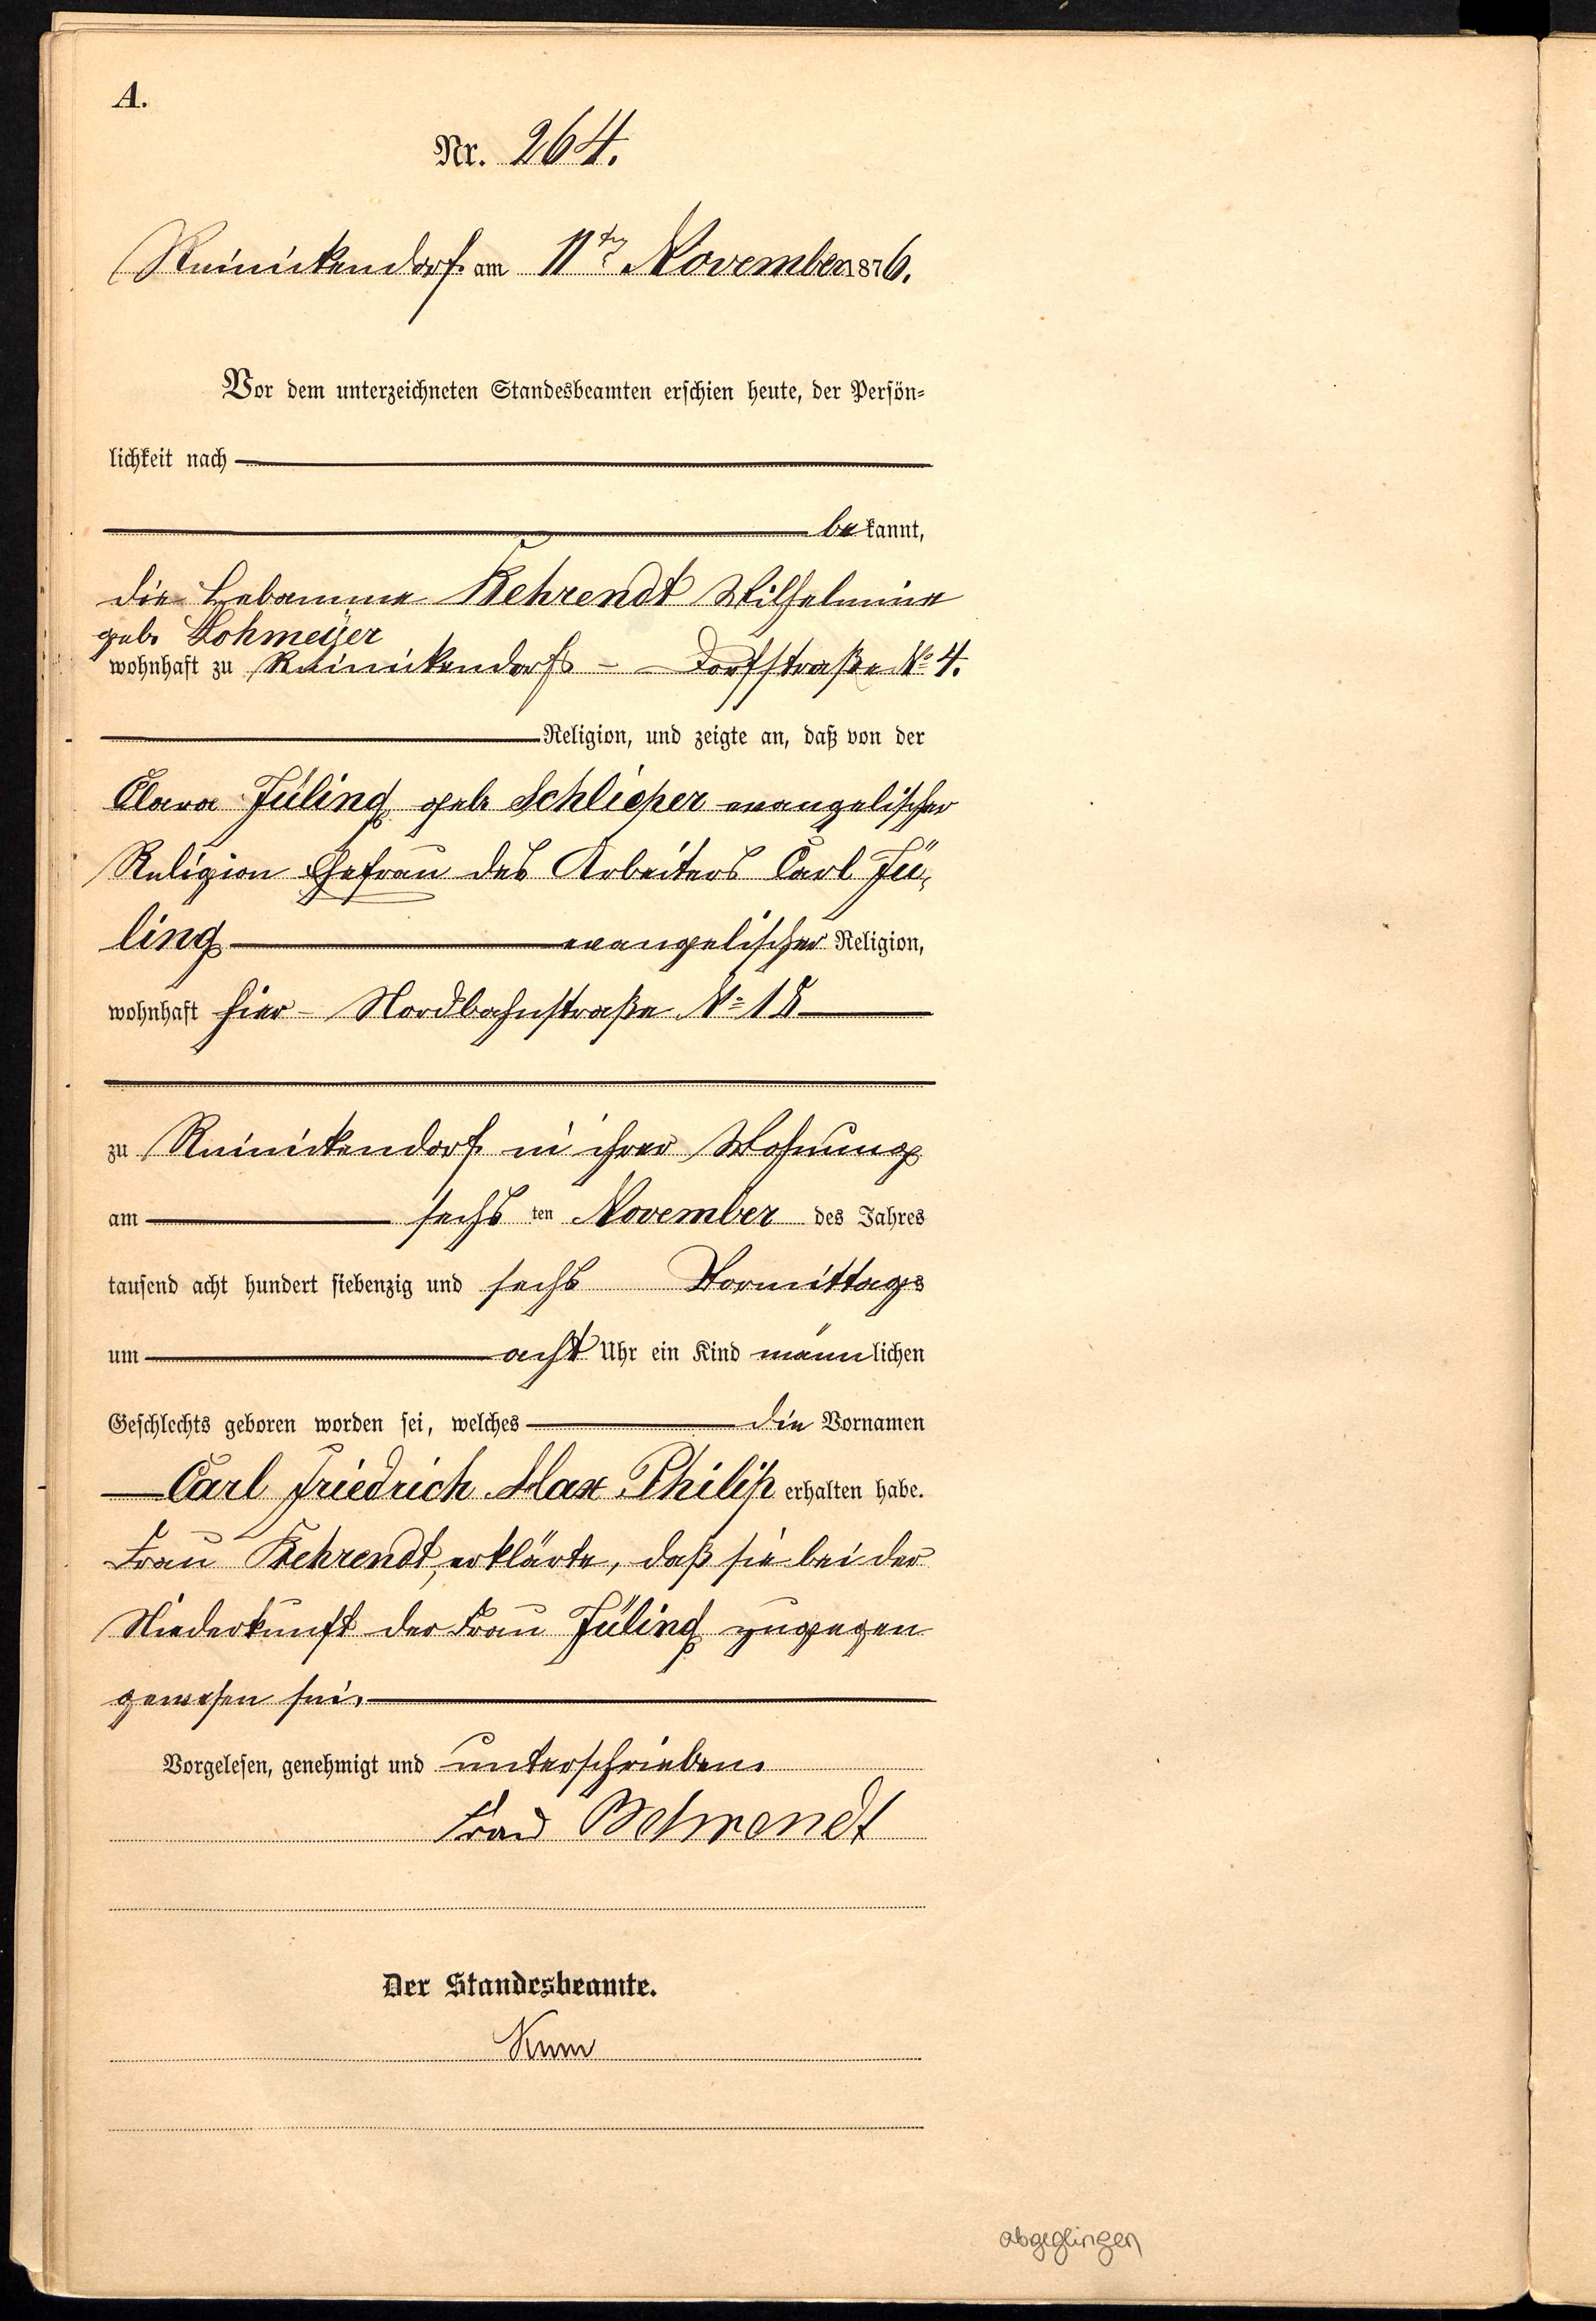 A.
Nr. 264.
Reinickendorf am 11ten November 1876.
Vor dem unterzeichneten Standesbeamten erschien heute, der Persön-
lichkeit nach
bekannt,
die Hebamme Behrendt Wilhelmine
geb. Lohmeyer
wohnhaft zu Reinickendorf - Dorfstraße No 4.
Religion, und zeigte an, daß von der
Clara Jüling geb. Schlieper evangelischer
Religion Ehefrau des Arbeiters Carl Jü-
ling evangelischer Religion,
wohnhaft hier - Nordbahnstraße No
zu Reinickendorf in ihrer Wohnung
am sechs ten November des Jahres
tausend acht hundert siebenzig und sechs Vormittags
um acht Uhr ein Kind männlichen
Geschlechts geboren worden sei, welches die Vornamen
Carl Friedrich Max Philip erhalten habe.
Frau Behrendt, erklärte, daß sie bei der
Niederkunft der Frau Jüling zugegen
gewesen sei.
Vorgelesen, genehmigt und unterschrieben.
Frau Behrendt
Der Standesbeamte.
abgeglingen